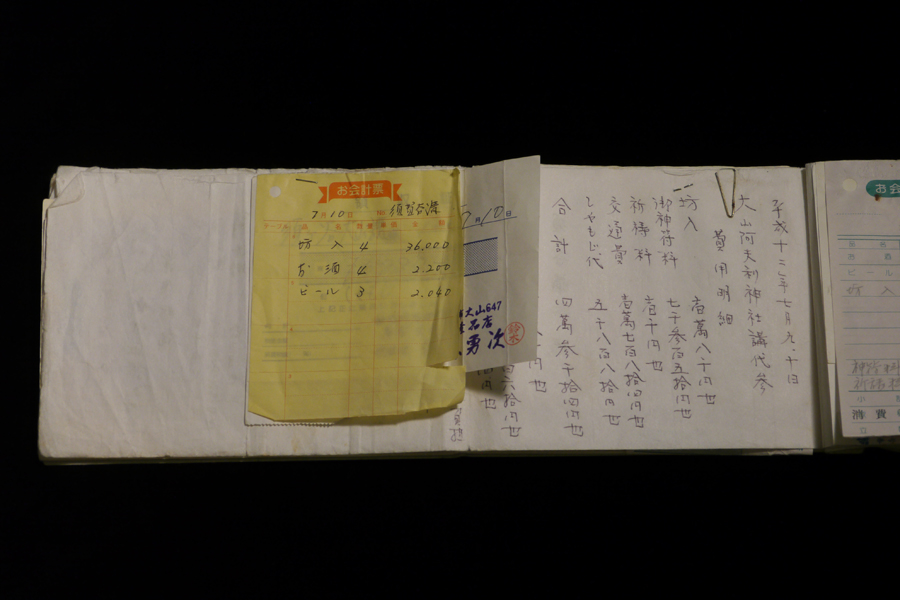 平成十二年七月九、十日
大山阿夫利神社講代参
費用明細
坊入 壱萬八千円也
御神符料 七千参百五拾円也
祈祷料 壱千円也
交通費 壱萬七百八拾四円也
しゃもじ代 五千八百八拾円也
合計 四萬参千拾四円也
お会計票
7月10日 No.
坊入 4 36,000
お酒 4 2,200
ビール 3 2,040
月10日
大山647
品店
勇次
お会
ビール
坊入
消費